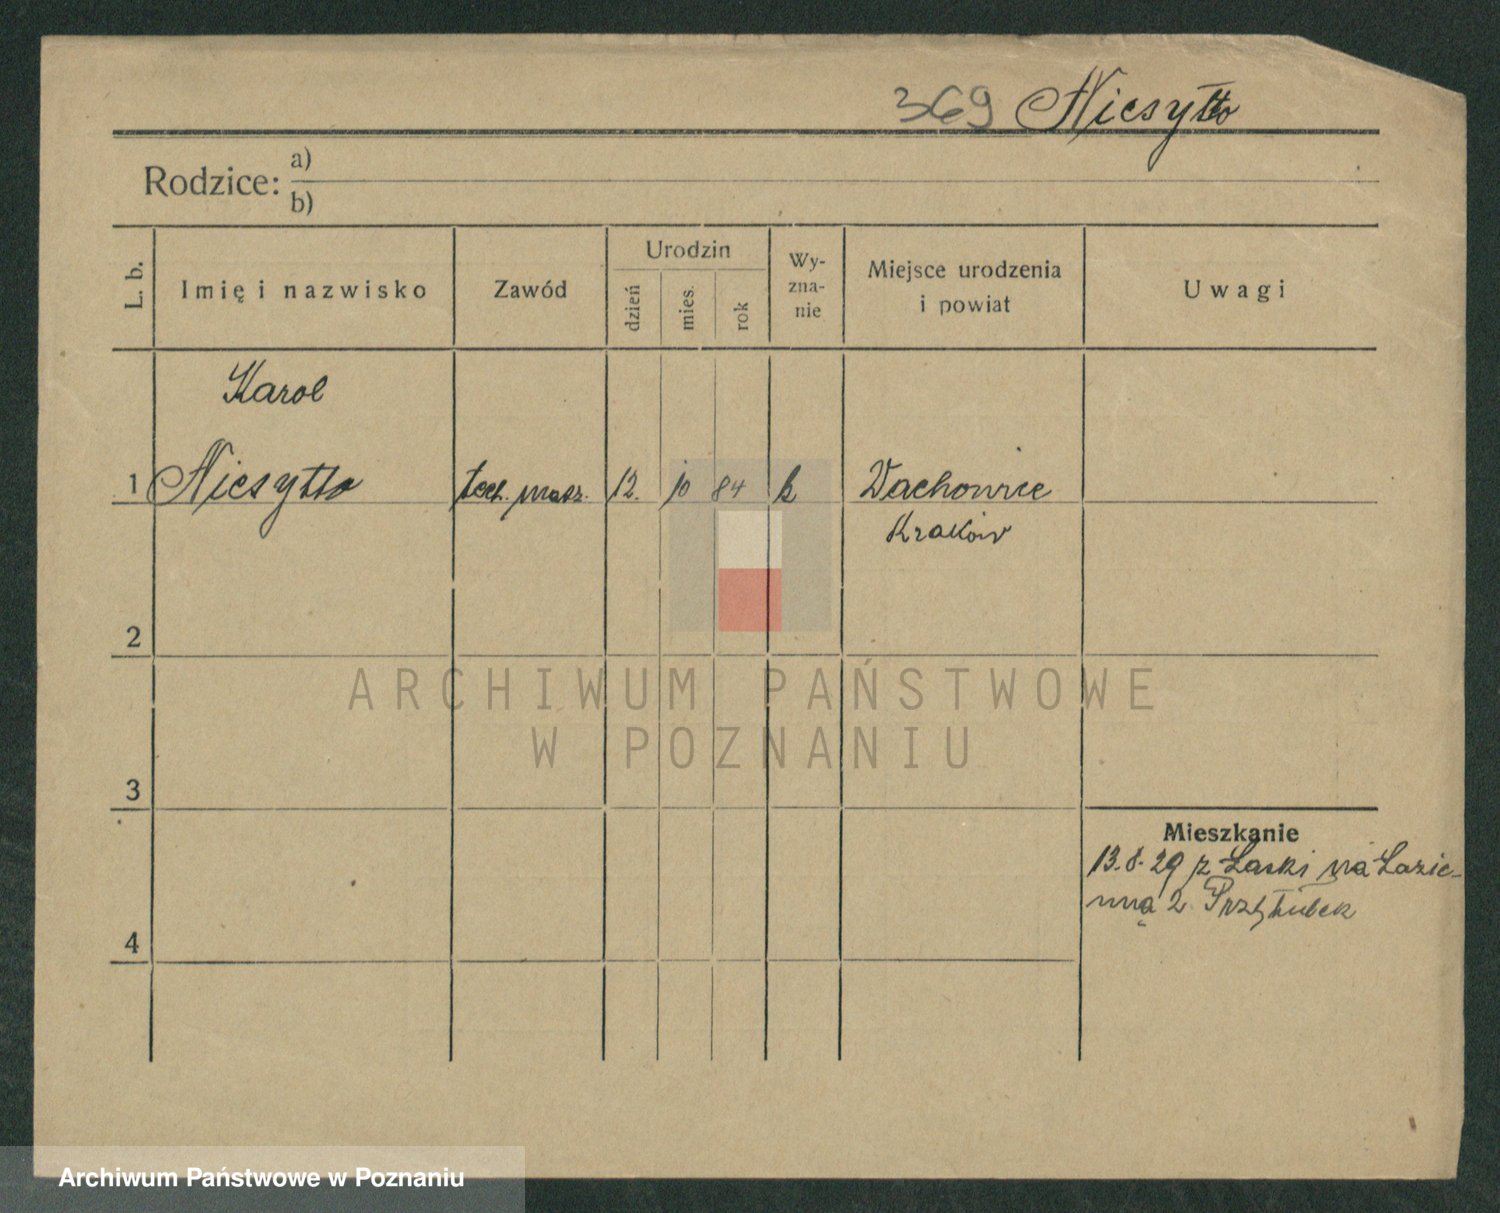 369 Niesytto
Rodzice: a)
b)
L. b.
Imię i nazwisko
Zawód
Urodzin
dzień
mies.
rok
Wy-
zna-
nie
Miejsce urodzenia
i powiat
Uwagi
Karol
1 Niesytto tech. masz. 12. 10 84 k Wachowice
Kraków
2
ARCHIWUM PAŃSTWOWE
W POZNANIU
3
Mieszkanie
13.8.29 z Łaski na Łazie-
nną 2 Przyłubek
4
Archiwum Państwowe w Poznaniu